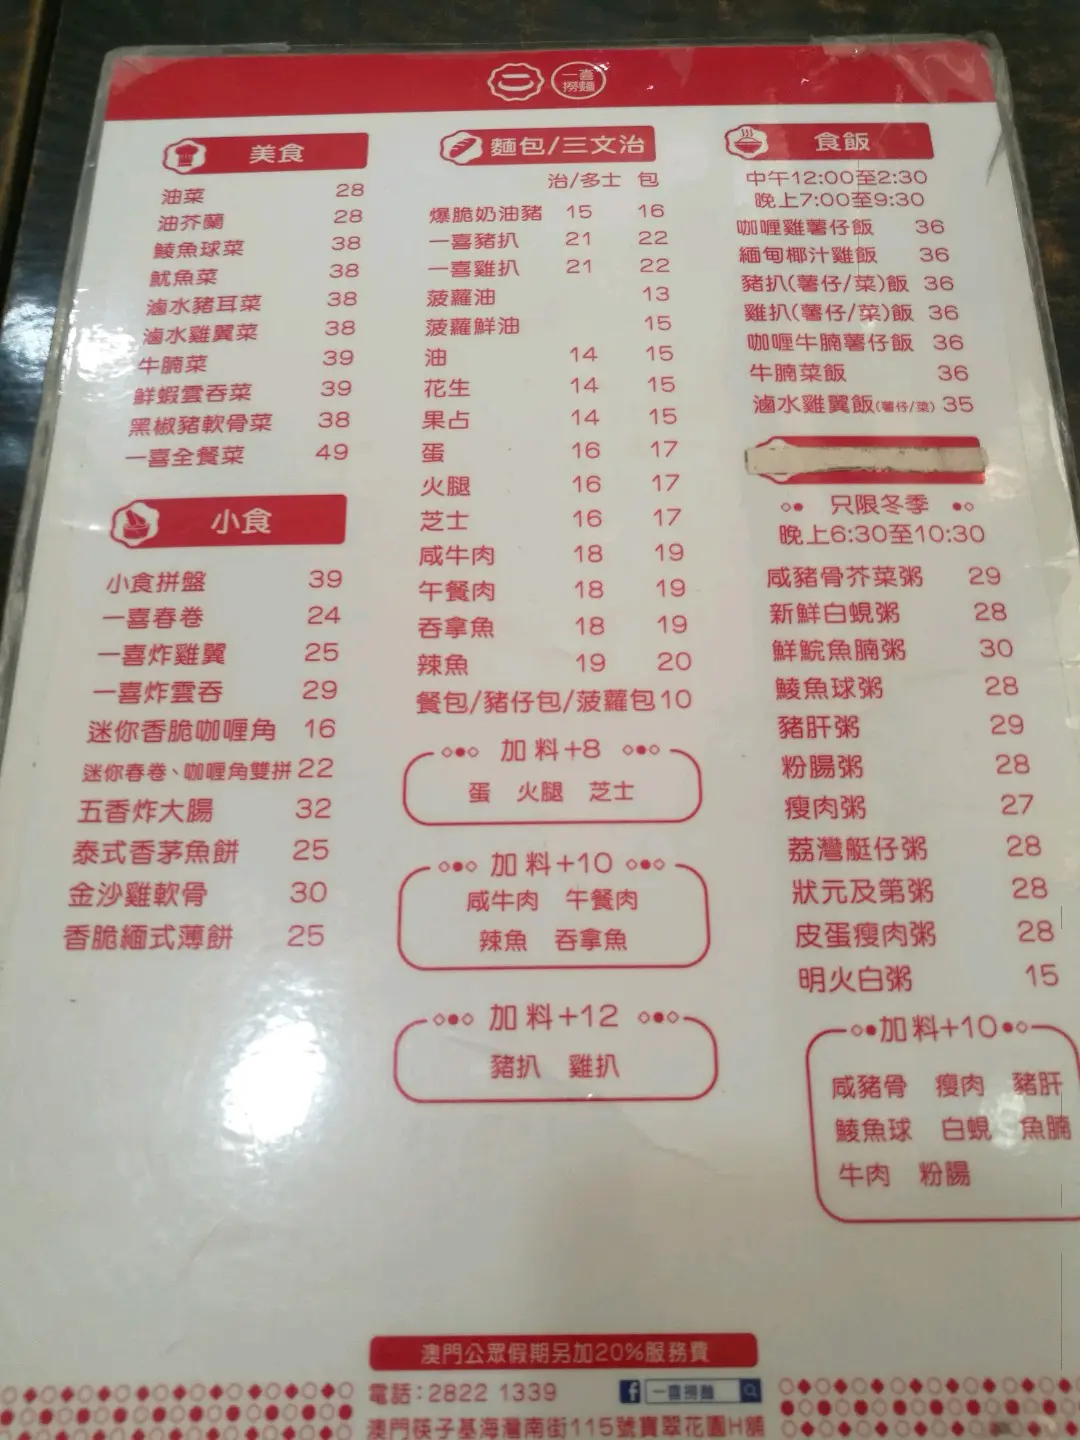 一喜
撈麵
美食
油菜 28
油芥蘭 28
鯪魚球菜 38
魷魚菜 38
滷水豬耳菜 38
滷水雞翼菜 38
牛腩菜 39
鮮蝦雲吞菜 39
黑椒豬軟骨菜 38
一喜全餐菜 49
小食
小食拼盤 39
一喜春卷 24
一喜炸雞翼 25
一喜炸雲吞 29
迷你香脆咖喱角 16
迷你春卷、咖喱角雙拼 22
五香炸大腸 32
泰式香茅魚餅 25
金沙雞軟骨 30
香脆緬式薄餅 25
麵包/三文治
治/多士 包
爆脆奶油豬 15 16
一喜豬扒 21 22
一喜雞扒 21 22
菠蘿油 13
菠蘿鮮油 15
油 14 15
花生 14 15
果占 14 15
蛋 16 17
火腿 16 17
芝士 16 17
咸牛肉 18 19
午餐肉 18 19
吞拿魚 18 19
辣魚 19 20
餐包/豬仔包/菠蘿包 10
加料+8
蛋 火腿 芝士
加料+10
咸牛肉 午餐肉
辣魚 吞拿魚
加料+12
豬扒 雞扒
食飯
中午12:00至2:30
晚上7:00至9:30
咖喱雞薯仔飯 36
緬甸椰汁雞飯 36
豬扒(薯仔/菜)飯 36
雞扒(薯仔/菜)飯 36
咖喱牛腩薯仔飯 36
牛腩菜飯 36
滷水雞翼飯(薯仔/菜) 35
只限冬季
晚上6:30至10:30
咸豬骨芥菜粥 29
新鮮白蜆粥 28
鮮鯇魚腩粥 30
鯪魚球粥 28
豬肝粥 29
粉腸粥 28
瘦肉粥 27
荔灣艇仔粥 28
狀元及第粥 28
皮蛋瘦肉粥 28
明火白粥 15
加料+10
咸豬骨 瘦肉 豬肝
鯪魚球 白蜆 魚腩
牛肉 粉腸
澳門公眾假期另加20%服務費
電話:2822 1339
f 一喜撈麵
澳門筷子基海灣南街115號寶翠花園H舖